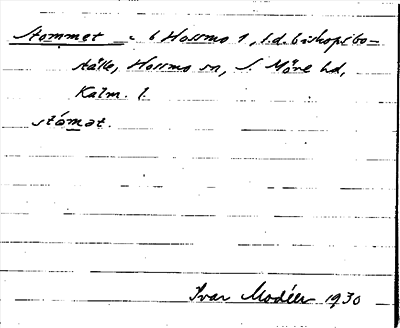 Stommet = 6 Hossmo 1, s.d. biskopsbo-
ställe, Hossmo sn, S. Möre hd,
Kalm. l.
stómət.
Ivar Modéer 1930